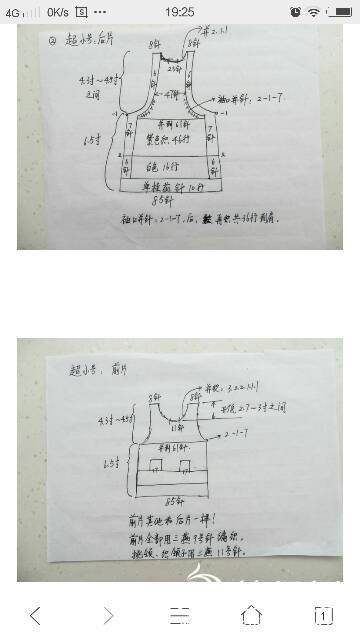 4G 0K/s S ••• 19:25
② 超小号:后片
8针 8针 并2.1.1
23针
4.3寸~4.5寸
之间
6针 6针
47针
袖口并针:2-1-7.
-1 -1
并剩61针
6.5寸
7针 紫色织46行 7针
2 2
6针 白色16行 6针
单桂花针10行
85针
袖口并针:2-1-7,后,再织共36行到肩。
超小号:前片
8针 8针
11针
4.3寸~4.5寸
2.7~3寸之间
2-1-7
并剩61针
6.5寸
85针
前片其他和后片一样!
前片全部用三燕9号针编织。
三燕11号针。
1